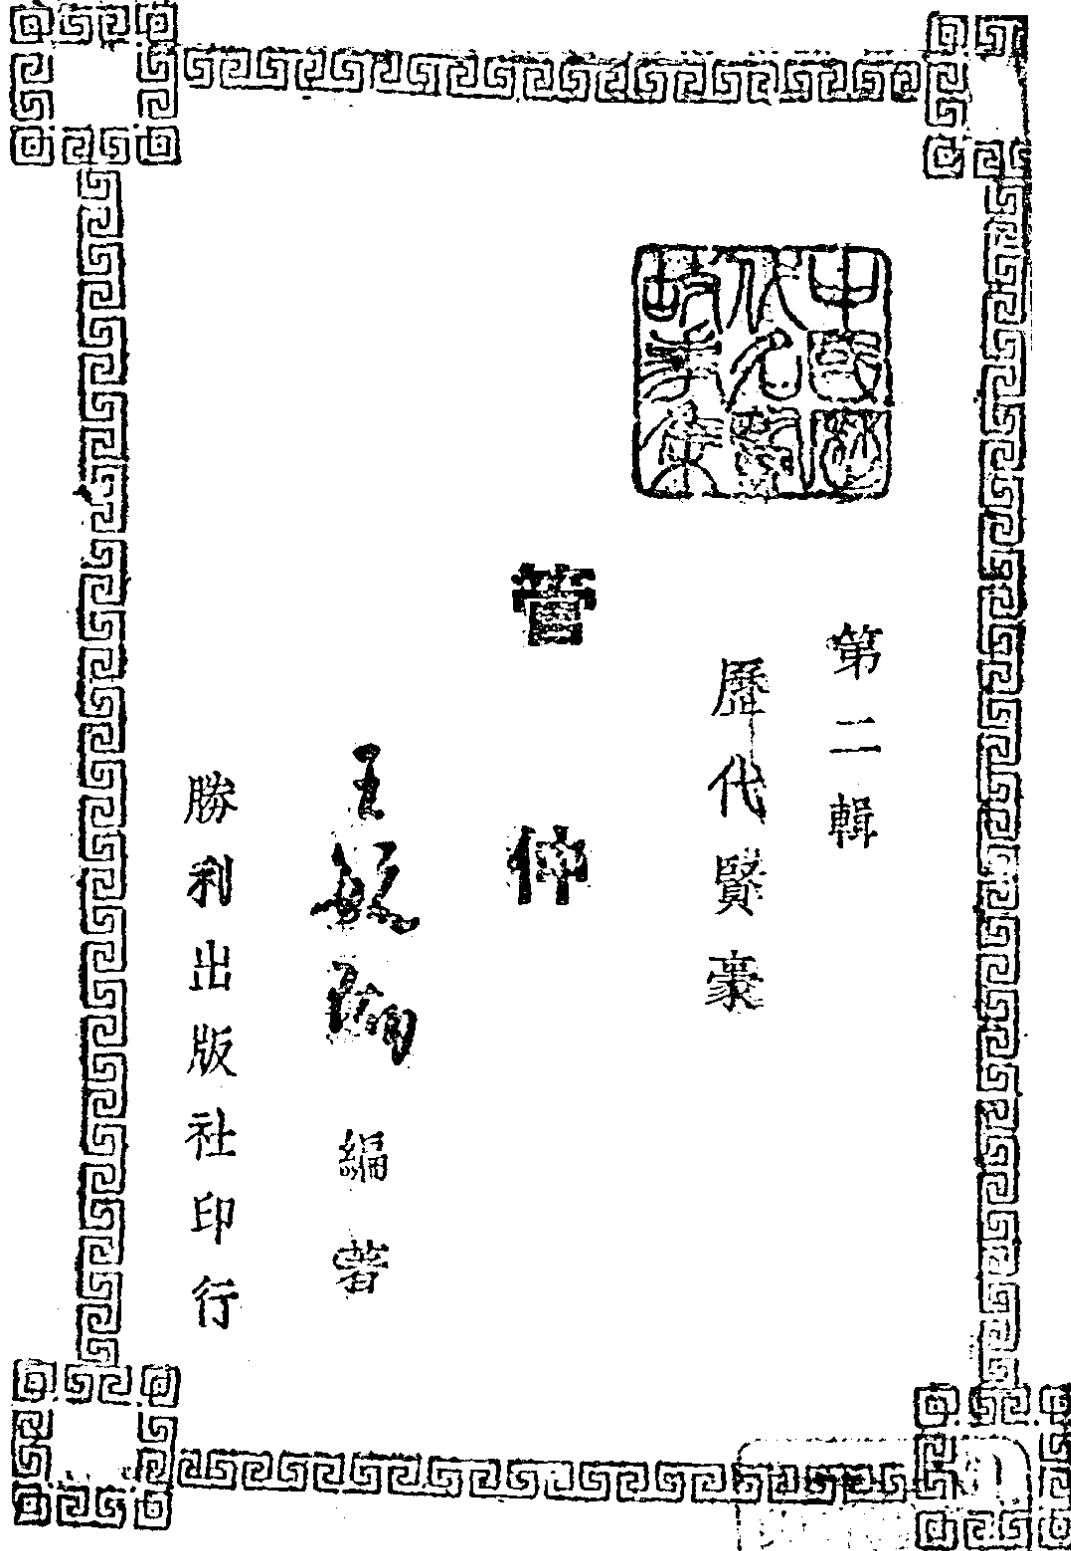 中國歷
代名賢
故事集
第二輯
歷代賢豪
管仲
王毓瑚 編著
勝利出版社印行